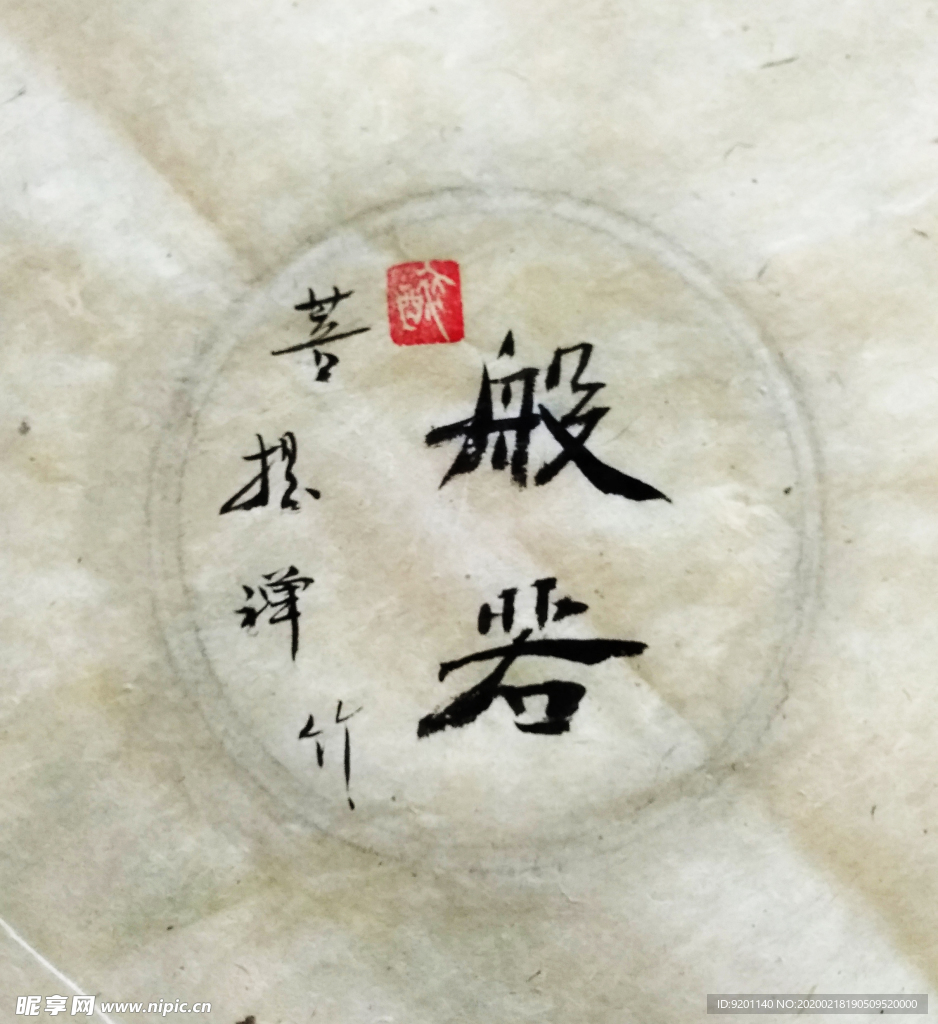 般若
菩提禅竹
昵享网 www.nipic.cn
ID:9201140 NO:20200218190509520000